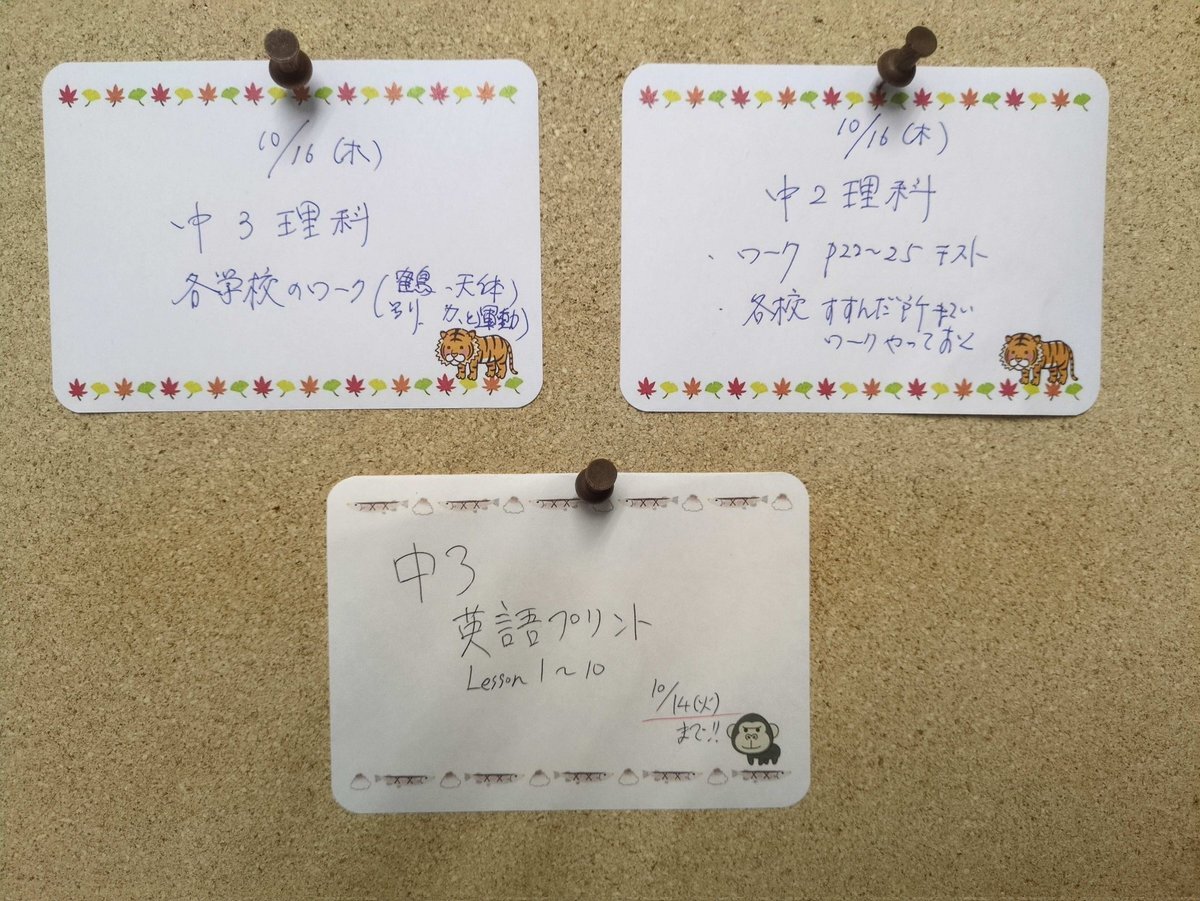 10/16 (木)
中3理科
各学校のワーク(鶴、天体)
力と運動)
10/16 (木)
中2理科
・ワーク P22~25 テスト
・各校 すすんだ所まで
ワークやっておく
中3
英語プリント
Lesson 1~10
10/14(火)
まで!!